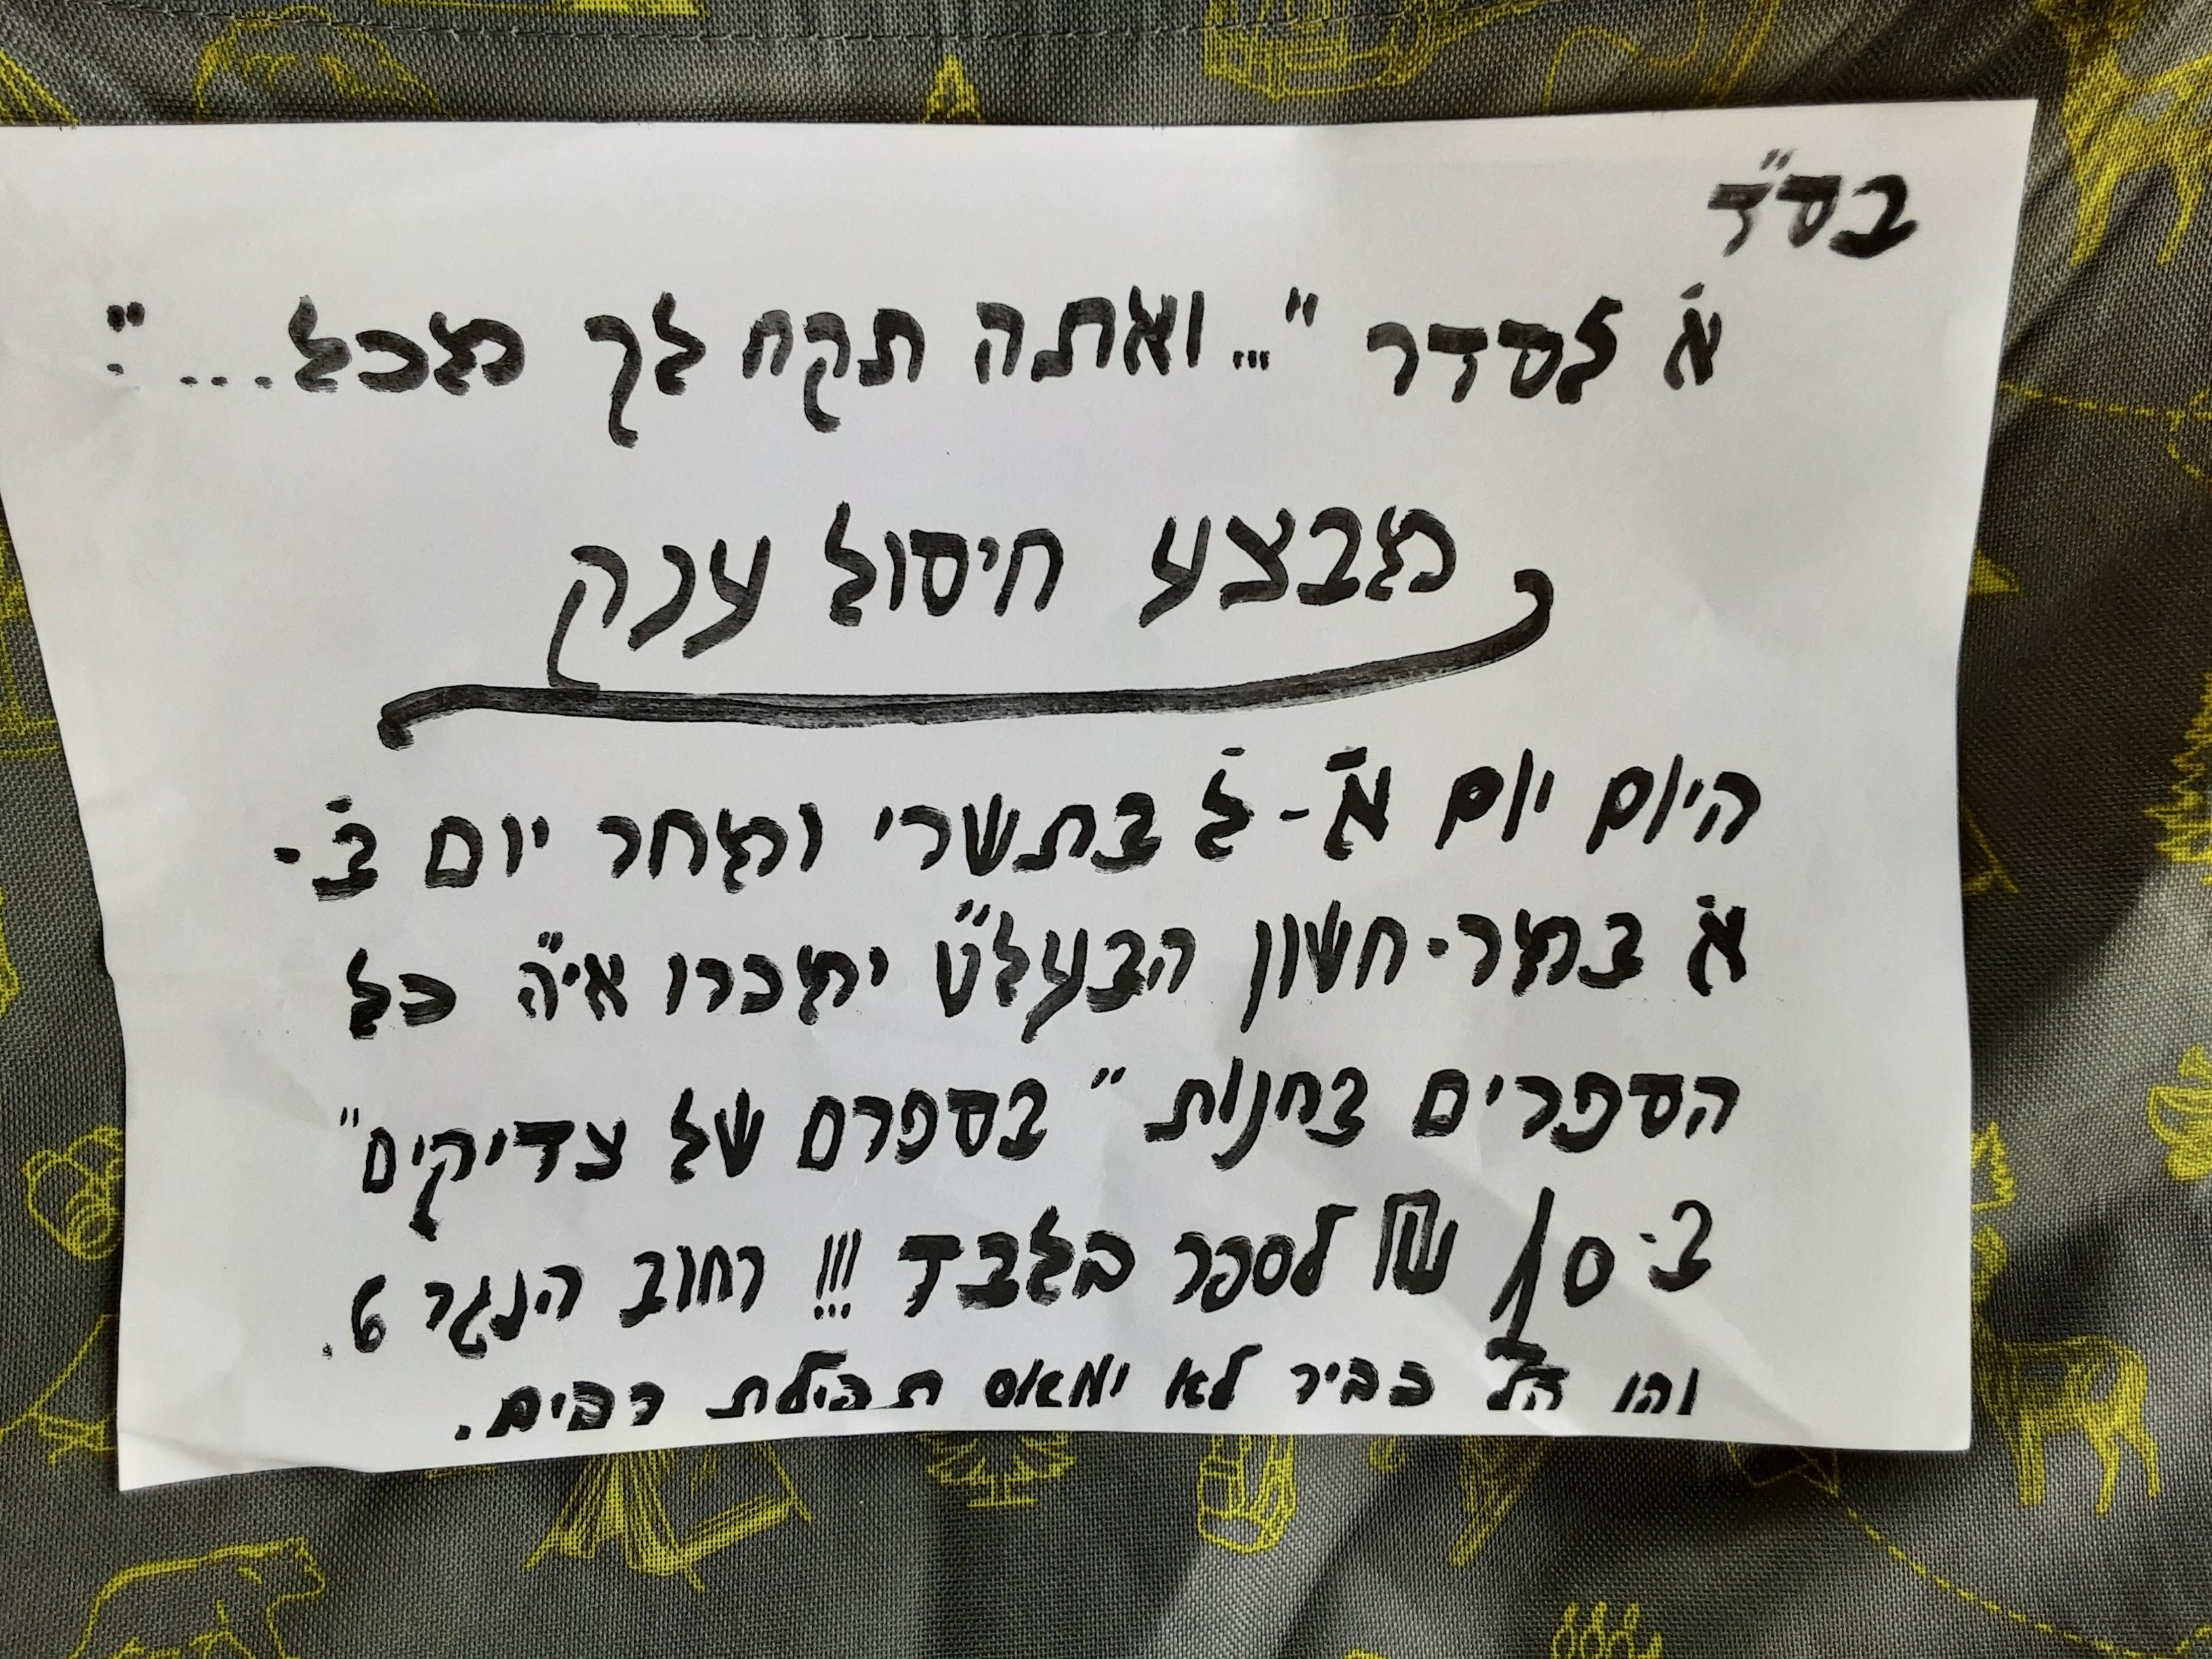 בס"ד
א' לסדר "...ואתה תקח לך מכל...":
מבצע חיסול ענק
היום יום א'-ל' בתשרי ומחר יום ב'-
א' במר-חשון הבעל"ט ימכרו אי"ה כל
הספרים בחנות "בספרם של צדיקים"
ב-10 ₪ לספר בלבד!!! רחוב הנגר 6.
והן אל כביר לא ימאס תפילת רבים.